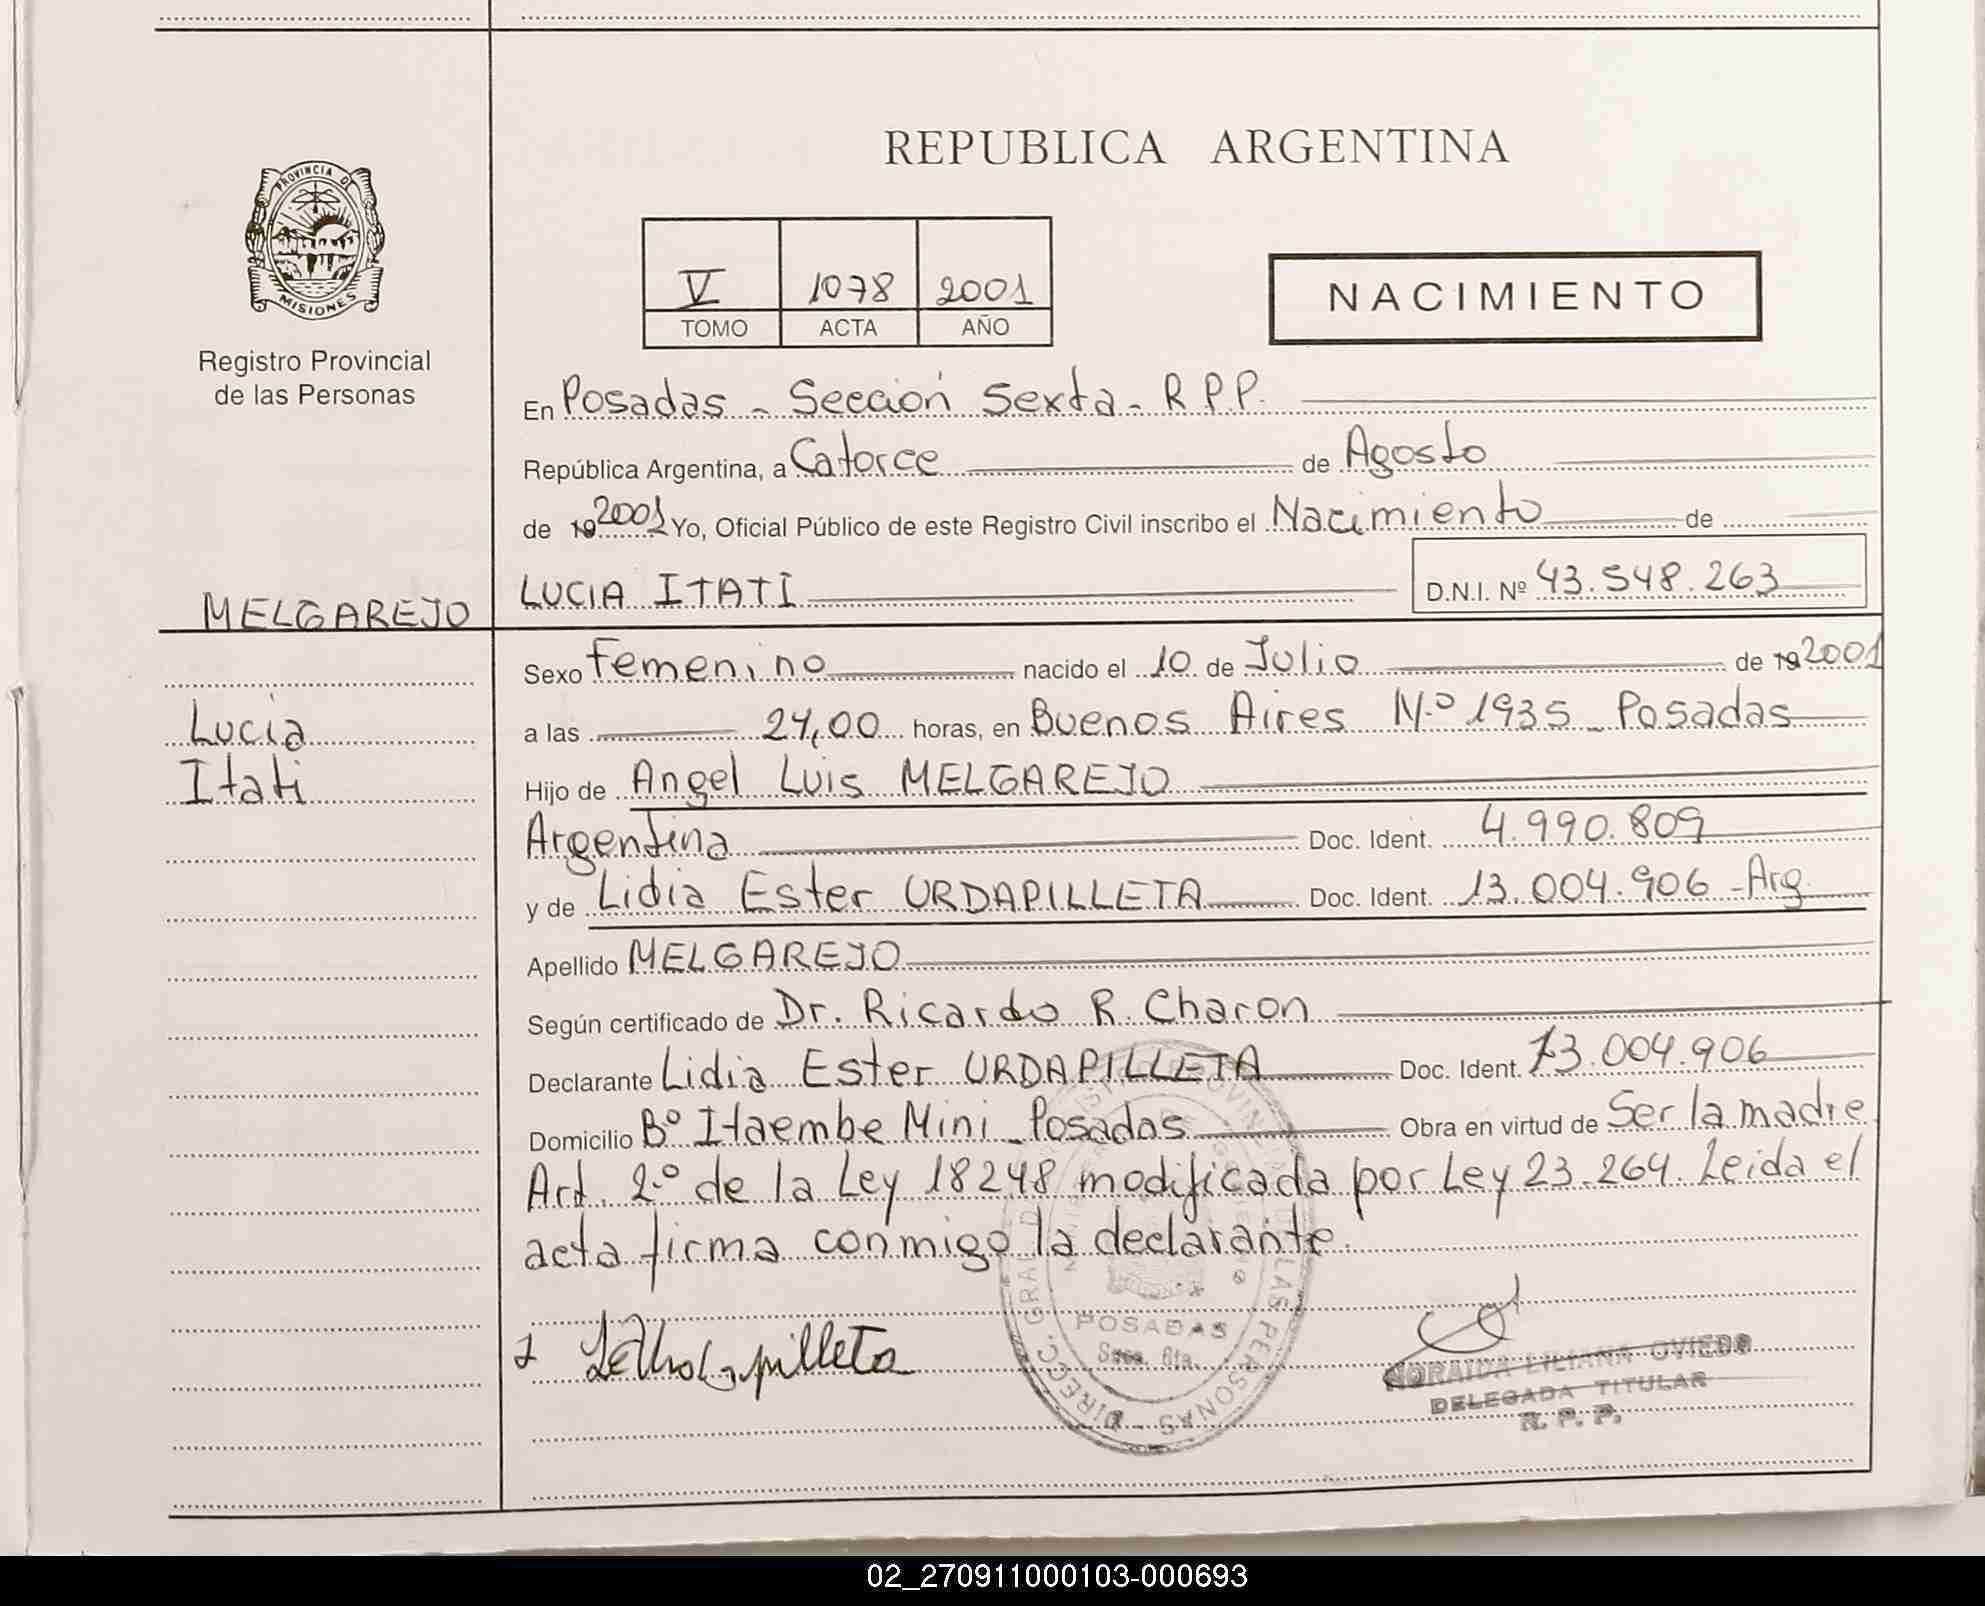 REPUBLICA ARGENTINA
PROVINCIA DE
MISIONES
Registro Provincial
de las Personas
V 1078 2001
TOMO ACTA AÑO
NACIMIENTO
En Posadas - Sección Sexta - R.P.P.
República Argentina, a Catorce de Agosto
de 19 2001 Yo, Oficial Público de este Registro Civil inscribo el Nacimiento de
MELGAREJO LUCIA ITATÍ D.N.I. Nº 43.548.263
Sexo Femenino nacido el 10 de Julio de 19 2001
Lucia
Itati
a las 24,00 horas, en Buenos Aires N.º 1935 - Posadas
Hijo de Angel Luis MELGAREJO
Argentina Doc. Ident. 4.990.809
y de Lidia Ester URDAPILLETA Doc. Ident. 13.004.906 - Arg.
Apellido MELGAREJO
Según certificado de Dr. Ricardo R. Charon
Declarante Lidia Ester URDAPILLETA Doc. Ident. 13.004.906
Domicilio Bº Itaembe Mini - Posadas Obra en virtud de Ser la madre
Art. 2.º de la Ley 18248 modificada por Ley 23.264. Leida el
acta firma conmigo la declarante.
POSADAS
Secc. 6ta.
NORAIDA LILIANA OVIEDO
DELEGADA TITULAR
R. P. P.
02_270911000103-000693